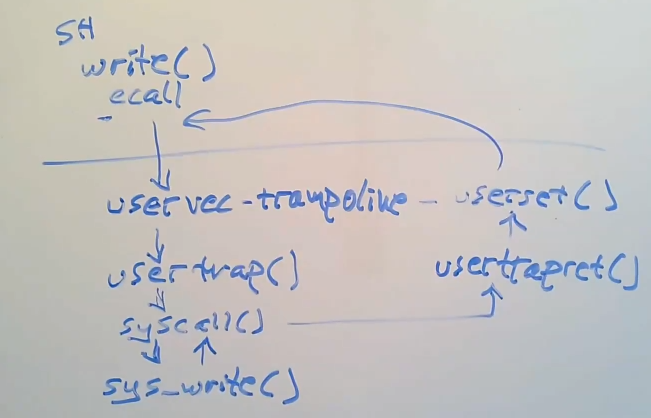 SH
write()
ecall
uservec-trampoline - userset()
usertrap()
usertrapret()
syscall()
sys_write()